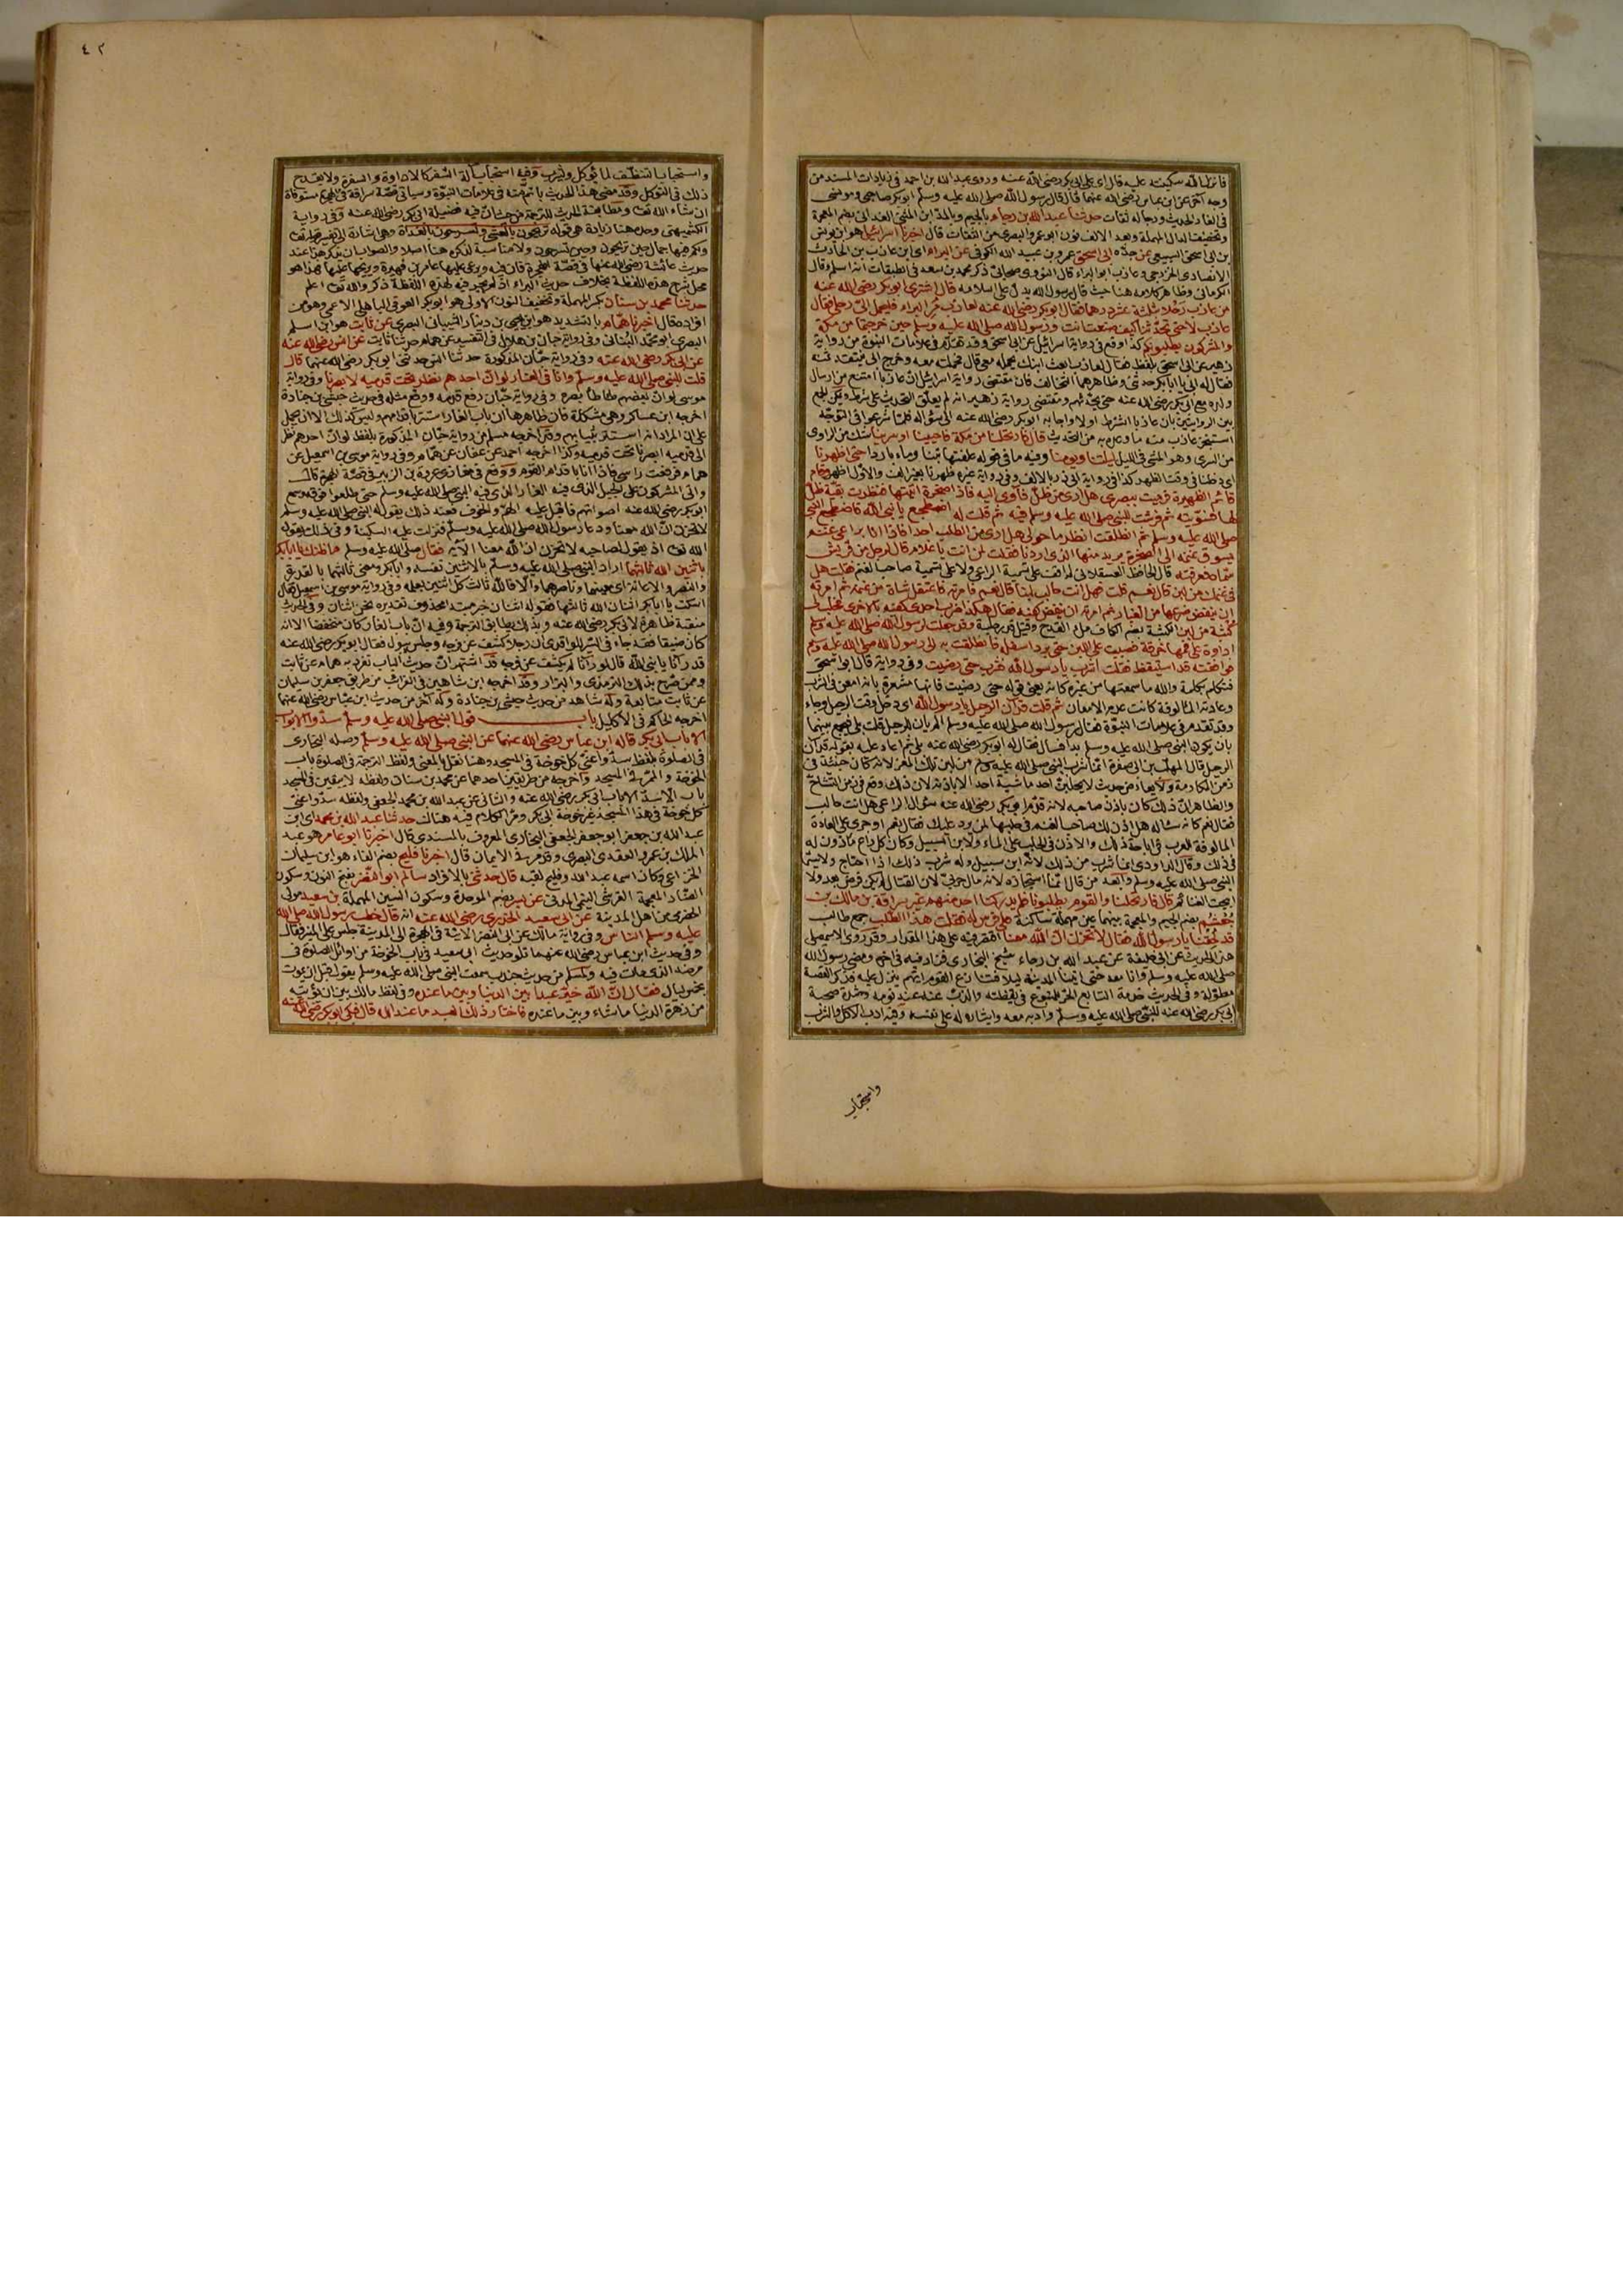 فانزل الله سكينته عليه قال اي على ابي بكر رضي الله عنه وروى عبد الله بن احمد في زيادات المسند من
وجه آخر عن ابن عباس رضي الله عنهما قال قال رسول الله صلى الله عليه وسلم ابو بكر صاحبي ومونسي
في الغار الحديث ورجاله ثقات حدثنا عبد الله بن رجاء بالجيم وبالمد ابن المثنى الغداني بضم المعجمة
وتخفيف الدال المهملة وبعد الالف نون ابو عمرو البصري من الثقات قال اخبرنا اسرائيل هو ابن يونس
بن ابي اسحق السبيعي عن جده ابي اسحق عمرو بن عبيد الله الكوفي عن البراء اي ابن عازب بن الحارث
الانصاري الخزرجي وعازب ابو البراء قال النووي صحابي ذكر محمد بن سعد في الطبقات انه اسلم وقال
الكرماني وظاهر كلامه هنا حيث قال رسول الله يدل على اسلامه قال اشترى ابو بكر رضي الله عنه
من عازب رحلا بثلثة عشر درهما فقال ابو بكر رضي الله عنه لعازب مر البراء فليحمل الي رحلي فقال
عازب لا حتى تحدثنا كيف صنعت انت ورسول الله صلى الله عليه وسلم حين خرجتما من مكة
والمشركون يطلبونكم كذا وقع في رواية اسرائيل عن ابي اسحق وقد تقدم في علامات النبوة من رواية
زهير عن ابي اسحق بلفظ فقال لعازب ابعث ابنك يحمله معي قال فحملته معه وخرج ابي ينتقد ثمنه
فقال له ابي يا ابا بكر حدثني وظاهرهما التخالف فان مقتضى رواية اسرائيل ان عازبا امتنع من ارسال
ولده مع ابي بكر رضي الله عنه حتى يحدثهم ومقتضى رواية زهير انه لم يعلق التحديث على شرط ويمكن الجمع
بين الروايتين بان عازبا اشترط اولا واجابه ابو بكر رضي الله عنه الى سؤاله فلما شرعوا في التوجه
استنجز عازب منه ما وعده به من التحديث قال فارتحلنا من مكة فاحيينا او سرينا شك من الراوي
من السرى وهو المشي في الليل ليلتنا ويومنا وفيه ما في قوله علفتها تبنا وماء باردا حتى اظهرنا
اي دخلنا في وقت الظهر كذا في رواية ابي ذر بالالف وفي رواية غيره ظهرنا بغير الف والاول اظهر وقام
قائم الظهيرة فرميت ببصري هل ارى من ظل فآوي اليه فاذا صخرة اتيتها فنظرت بقية ظل
لها فسويته ثم فرشت للنبي صلى الله عليه وسلم فيه ثم قلت له اضطجع يا نبي الله فاضطجع النبي
صلى الله عليه وسلم ثم انطلقت انظر ما حولي هل ارى من الطلب احدا فاذا انا براعي غنم
يسوق غنمه الى الصخرة يريد منها الذي اردنا فقلت لمن انت يا غلام قال لرجل من قريش
سماه فعرفته قال الحافظ العسقلاني لم اقف على تسمية الراعي ولا على تسمية صاحب الغنم فقلت هل
في غنمك من لبن قال نعم قلت فهل انت حالب لبنا قال نعم فامرته فاعتقل شاة من غنمه ثم امرته
ان ينفض ضرعها من الغبار ثم امرته ان ينفض كفيه فقال هكذا ضرب احدى كفيه بالاخرى فحلب لي
كثبة من لبن الكثبة بضم الكاف ملء القدح وقيل قدر حلبة وقد جعلت لرسول الله صلى الله عليه وسلم
اداوة على فمها خرقة فصببت على اللبن حتى برد اسفله فانطلقت به الى رسول الله صلى الله عليه وسلم
فوافقته قد استيقظ فقلت اشرب يا رسول الله فشرب حتى رضيت وفي رواية قال ابو اسحق
فتكلم بكلمة والله ما سمعتها من غيره كانه يعني قوله حتى رضيت فانها مشعرة بانه امعن في الشرب
وعادته المالوفة كانت عدم الامعان ثم قلت قد آن الرحيل يا رسول الله اي دخل وقت الرحيل وجاء
وقد تقدم في علامات النبوة فقال رسول الله صلى الله عليه وسلم الم يان للرحيل قلت بلى فيجمع بينهما
بان يكون النبي صلى الله عليه وسلم بدأ فسال فقال له ابو بكر رضي الله عنه بلى ثم اعاد عليه بقوله قد آن
الرحيل قال المهلب بن ابي صفرة انما شرب النبي صلى الله عليه وسلم من لبن تلك الغنم لانه كان حينئذ في
زمن المكارمة ولا يعارضه حديث لا يحلبن احد ماشية احد الا باذنه لان ذلك وقع في زمن التشاح
والظاهر ان ذلك كان باذن صاحبه لانه قد مر ابو بكر رضي الله عنه سؤال الراعي هل انت حالب
فقال نعم كانه ساله هل اذن لك صاحب الغنم في حلبها لمن يرد عليك فقال نعم او جرى على العادة
المالوفة للعرب في اباحة ذلك والاذن في الحلب على الماء ولابن السبيل وكان كل راع ماذون له
في ذلك وقال الداودي انما شرب من ذلك لانه ابن سبيل وله شرب ذلك اذا احتاج ولا سيما
النبي صلى الله عليه وسلم وابعد من قال انما استجازه لانه مال حربي لان القتال لم يكن فرض بعد ولا
ابيحت الغنائم قال فارتحلنا والقوم يطلبونا فلم يدركنا احد منهم غير سراقة بن مالك بن
جعشم بضم الجيم والمعجمة بينهما عين مهملة ساكنة على فرس له فقلت هذا الطلب جمع طالب
قد لحقنا يا رسول الله فقال لا تحزن ان الله معنا اقتصر فيه على هذا المقدار وقد روى الاسمعيلي
هذا الحديث عن ابي خليفة عن عبد الله بن رجاء شيخ البخاري فزاد فيه في آخره ومضى رسول الله
صلى الله عليه وسلم وانا معه حتى اتينا المدينة ليلا فتنازع القوم ايهم ينزل عليه فذكر القصة
مطولة وفي الحديث خدمة التابع الحر للمتبوع في يقظته والذب عنه عند نومه وشدة محبة
ابي بكر رضي الله عنه للنبي صلى الله عليه وسلم وادبه معه وايثاره له على نفسه وفيه ادب الاكل والشرب
واستحباب
٤٢
واستحباب التنظف لما يؤكل ويشرب وفيه استحباب آلة السفر كالاداوة والسفرة ولا يقدح
ذلك في التوكل وقد مضى هذا الحديث باتم منه في علامات النبوة وسياتي قصة سراقة في الهجرة مستوفاة
ان شاء الله تعالى ومطابقة الحديث للترجمة من حيث ان فيه فضيلة ابي بكر رضي الله عنه وفي رواية
الكشميهني وحده هنا زيادة هي قوله تريحون بالعشي وتسرحون بالغداة وهي اشارة الى تفسير قوله تعالى
ولكم فيها جمال حين تريحون وحين تسرحون ولا مناسبة لذكره هنا اصلا والصواب ان يذكر هذا عند
حديث عائشة رضي الله عنها في قصة الهجرة فان فيه ويرعى عليها عامر بن فهيرة ويريحها عليهما فهذا هو
محل شرح هذه اللفظة بخلاف حديث البراء اذ لم يجر فيه لهذه اللفظة ذكر والله تعالى اعلم
حدثنا محمد بن سنان بكسر المهملة وتخفيف النون الاولى هو ابو بكر العوقي الباهلي الاعمى وهو من
افراده قال اخبرنا همام بالتشديد هو ابن يحيى بن دينار الشيباني البصري عن ثابت هو ابن اسلم
البصري ابو محمد البناني وفي رواية حبان بن هلال في التفسير عن همام حدثنا ثابت عن انس رضي الله عنه
عن ابي بكر رضي الله عنه وفي رواية حبان المذكورة حدثنا انس حدثني ابو بكر رضي الله عنهما قال
قلت للنبي صلى الله عليه وسلم وانا في الغار لو ان احدهم نظر تحت قدميه لابصرنا وفي رواية
موسى لو ان بعضهم طاطأ بصره وفي رواية حبان رفع قدميه ووقع مثله في حديث حبشي بن جنادة
اخرجه ابن عساكر وهي مشكلة فان ظاهرها ان باب الغار استتر باقدامهم وليس كذلك الا ان يحمل
على ان المراد انه استتر بثيابهم وقد اخرجه مسلم من رواية حبان المذكورة بلفظ لو ان احدهم نظر
الى قدميه ابصرنا تحت قدميه وكذا اخرجه احمد عن عفان عن همام وفي رواية موسى بن اسمعيل عن
همام فرفعت راسي فاذا انا باقدام القوم ووقع في مغازي عروة بن الزبير في قصة الهجرة قال
واتى المشركون على الجبل الذي فيه الغار الذي فيه النبي صلى الله عليه وسلم حتى طلعوا فوقه وسمع
ابو بكر رضي الله عنه اصواتهم فاقبل عليه الهم والخوف فعند ذلك يقول له النبي صلى الله عليه وسلم
لا تحزن ان الله معنا ودعا رسول الله صلى الله عليه وسلم فنزلت عليه السكينة وفي ذلك يقول
الله تعالى اذ يقول لصاحبه لا تحزن ان الله معنا الآية فقال صلى الله عليه وسلم ما ظنك يا ابا بكر
باثنين الله ثالثهما اراد النبي صلى الله عليه وسلم بالاثنين نفسه وابا بكر ومعنى ثالثهما بالقدرة
والنصر والاعانة اي معينهما وناصرهما والا فالله ثالث كل اثنين بعلمه وفي رواية موسى بن اسمعيل فقال
اسكت يا ابا بكر اثنان الله ثالثهما فقوله اثنان خبر مبتدا محذوف تقديره نحن اثنان وفي الحديث
منقبة ظاهرة لابي بكر رضي الله عنه وبذلك يطابق الترجمة وفيه ان باب الغار كان منخفضا الا انه
كان ضيقا فقد جاء في السير للواقدي ان رجلا كشف عن فرجه وجلس يبول فقال ابو بكر رضي الله عنه
قد رآنا يا نبي الله قال لو رآنا لم يكشف عن فرجه قد اشتهر ان حديث الباب تفرد به همام عن ثابت
وممن صرح بذلك الترمذي والبزار وقد اخرجه ابن شاهين في الغرائب من طريق جعفر بن سليمان
عن ثابت متابعة وله شاهد من حديث حبشي بن جنادة وله آخر من حديث ابن عباس رضي الله عنهما
اخرجه الحاكم في الاكليل باب قول النبي صلى الله عليه وسلم سدوا الابواب
الا باب ابي بكر قاله ابن عباس رضي الله عنهما عن النبي صلى الله عليه وسلم وصله البخاري
في الصلوة بلفظ سدوا عني كل خوخة في المسجد وهنا نقل بالمعنى ولفظ الترجمة في الصلوة باب
الخوخة والممر في المسجد واخرجه من طريقين احدهما عن محمد بن سنان ولفظه لا يبقين في المسجد
باب الا سد الا باب ابي بكر رضي الله عنه والثاني عن عبد الله بن محمد الجعفي ولفظه سدوا عني
كل خوخة في هذا المسجد غير خوخة ابي بكر ومر الكلام فيه هناك حدثنا عبد الله بن محمد اي ابن
عبد الله بن جعفر ابو جعفر الجعفي البخاري المعروف بالمسندي قال اخبرنا ابو عامر هو عبد
الملك بن عمرو العقدي البصري وقد مر في الايمان قال اخبرنا فليح بضم الفاء هو ابن سليمان
الخزاعي وكان اسمه عبد الملك وفليح لقبه قال حدثني بالافراد سالم ابو النضر بفتح النون وسكون
الضاد المعجمة القرشي التيمي المدني عن بسر بضم الموحدة وسكون السين المهملة بن سعيد مولى
الحضرمي من اهل المدينة عن ابي سعيد الخدري رضي الله عنه انه قال خطب رسول الله صلى الله
عليه وسلم الناس وفي رواية مالك عن ابي النضر الاتية في الهجرة الى المدينة جلس على المنبر فقال
وفي حديث ابن عباس رضي الله عنهما تلو حديث ابي سعيد في باب الخوخة من اوائل الصلوة في
مرضه الذي مات فيه ولمسلم من حديث جندب سمعت النبي صلى الله عليه وسلم يقول قبل ان يموت
بخمس ليال فقال ان الله خير عبدا بين الدنيا وبين ما عنده وفي لفظ مالك بين ان يؤتيه
من زهرة الدنيا ما شاء وبين ما عنده فاختار ذلك العبد ما عند الله قال فبكى ابو بكر رضي الله عنه